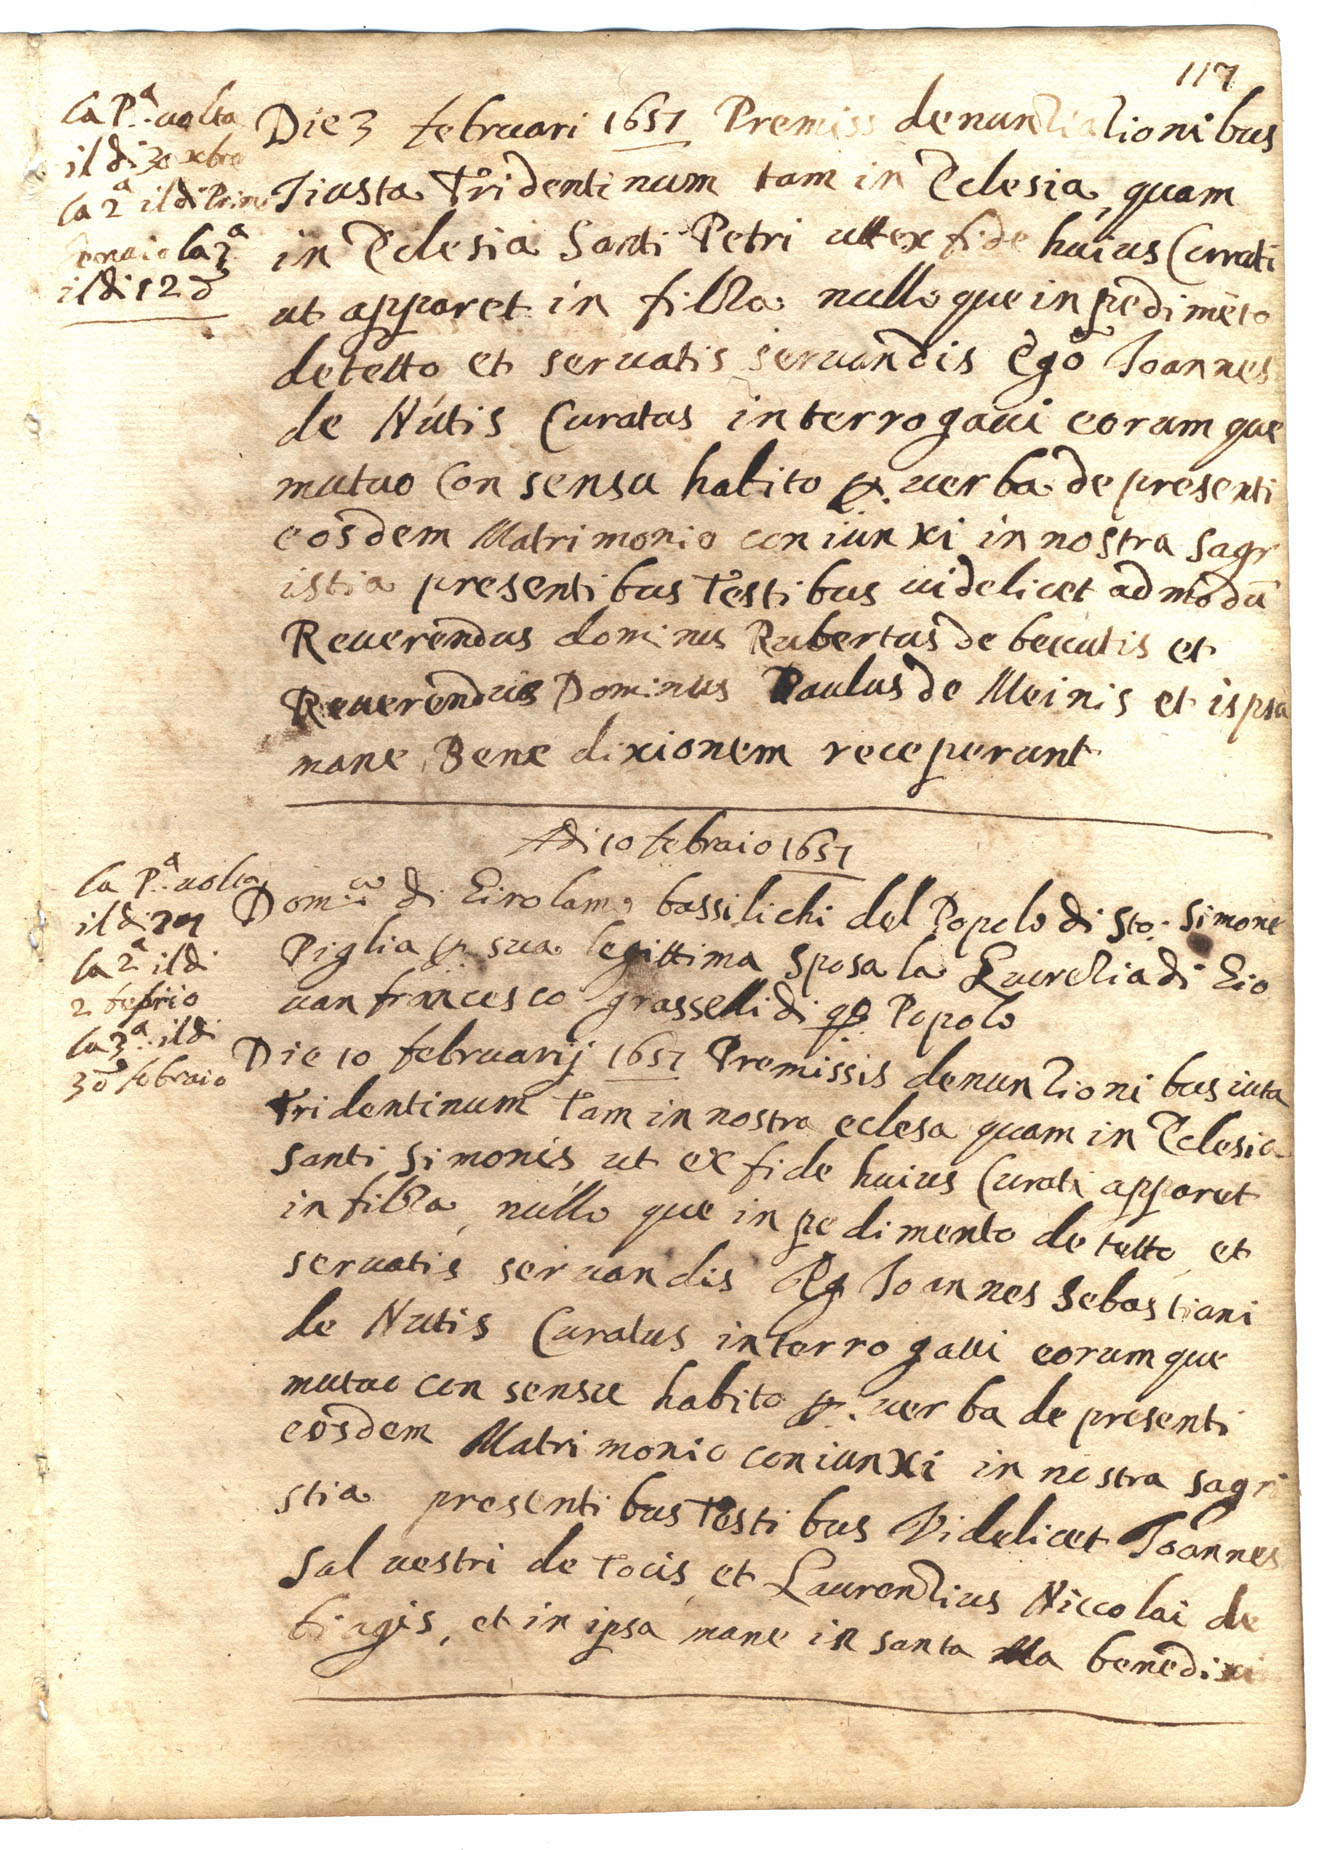 117
la P.a uolta
il di 30 xbre
la 2a il di Prim
Genaio la 3a
il di 12 d
Die 3 februari 1657 Premiss denuntiationibus
Jiusta Tridentinum tam in Eclesia, quam
in Eclesia Santi Petri utt ex fide huius Currati
ut apparet in filza nullo que inpedimēto
detetto et seruatis seruandis Ego Joannes
de Nutis Curatus interrogaui eorumque
mutuo Consensu habito p. uerba de presenti
eosdem Matrimonio coniunxi in nostra sagr
istia presentibus Testibus uidelicet admodū
Reuerendus dominus Rubertus de beccutis et
Reuerendus Dominus Paulus de Meinis et ispsa
mane Benedixionem receperunt
Adi 10 febraio 1657
la P.a uolta
il di 27
la 2a il di
2 febrio
la 3a il di
3 d febraio
Dom.co di Girolamo bassilichi del Popolo di Sto. Simone
Piglia p. sua legittima Sposa la Lucrezia di Gio
uanfrancesco grasselli di qo Popolo
Die 10 februarij 1657 Premissis denunzionibus iuta
Tridentinum Tam in nostra eclesa quam in Eclesia
Santi Simonis ut ex fide huius Curati apparet
in filza, nullo que inpedimento detetto et
seruatis seruandis Eg Joannes Sebastiani
de Nutis Curatus interrogaui eorumque
mutuo consensu habito p. uerba de presenti
eosdem Matrimonio coniunxi in nostra sagri
stia presentibus Testibus Videlicet Joannes
Saluestri de Tocis et Laurenzius Niccolai de
biagis, et in ipsa mane in santa Ma benedixi